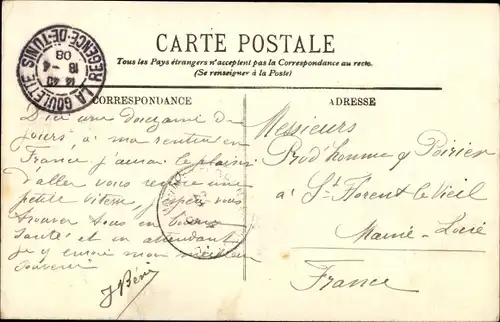 CARTE POSTALE
Tous les Pays étrangers n'acceptent pas la Correspondance au recto.
(Se renseigner à la Poste)
LA GOULETTE
RÉGENCE-DE-TUNIS
14 40
18 -4
08
CORRESPONDANCE
ADRESSE
D'ici une douzaine de
jours, à ma rentrée en
France j'aurai le plaisir
d'aller vous rendre une
petite visite, j'espère vous
trouver tous en bonne
santé et en attendant
je y envoie mon meilleur
souvenir
Messieurs
Prod'homme & Poirier
à St Florent le Vieil
Maine-Loire
France